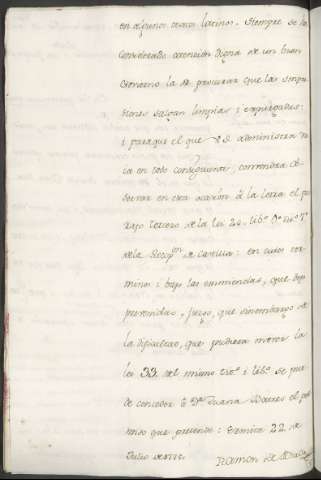 en algunos casos latinos. Siempre se ha
considerado atencion digna de un buen
Govierno la de procurar que las impre
siones salgan limpias i expurgadas:
i paraque el que V.S. administra
sea en todo consiguiente, convendra ob
servar en esta ocasion à la letra el par
rafo tercero de la lei 24. lib.º 1.º tit.º 7.º
dela Recop.on de Castilla: en cuios ter
minos i bajo las enmiendas, que dejo
prevenidas, juzgo, que sinembargo de
la dificultad, que pudiera mover la
lei 33. del mismo tit.º i lib.º se pue
de conceder à D.ª Juana el per
miso que pretende: 22 de
Julio de
Ramon de